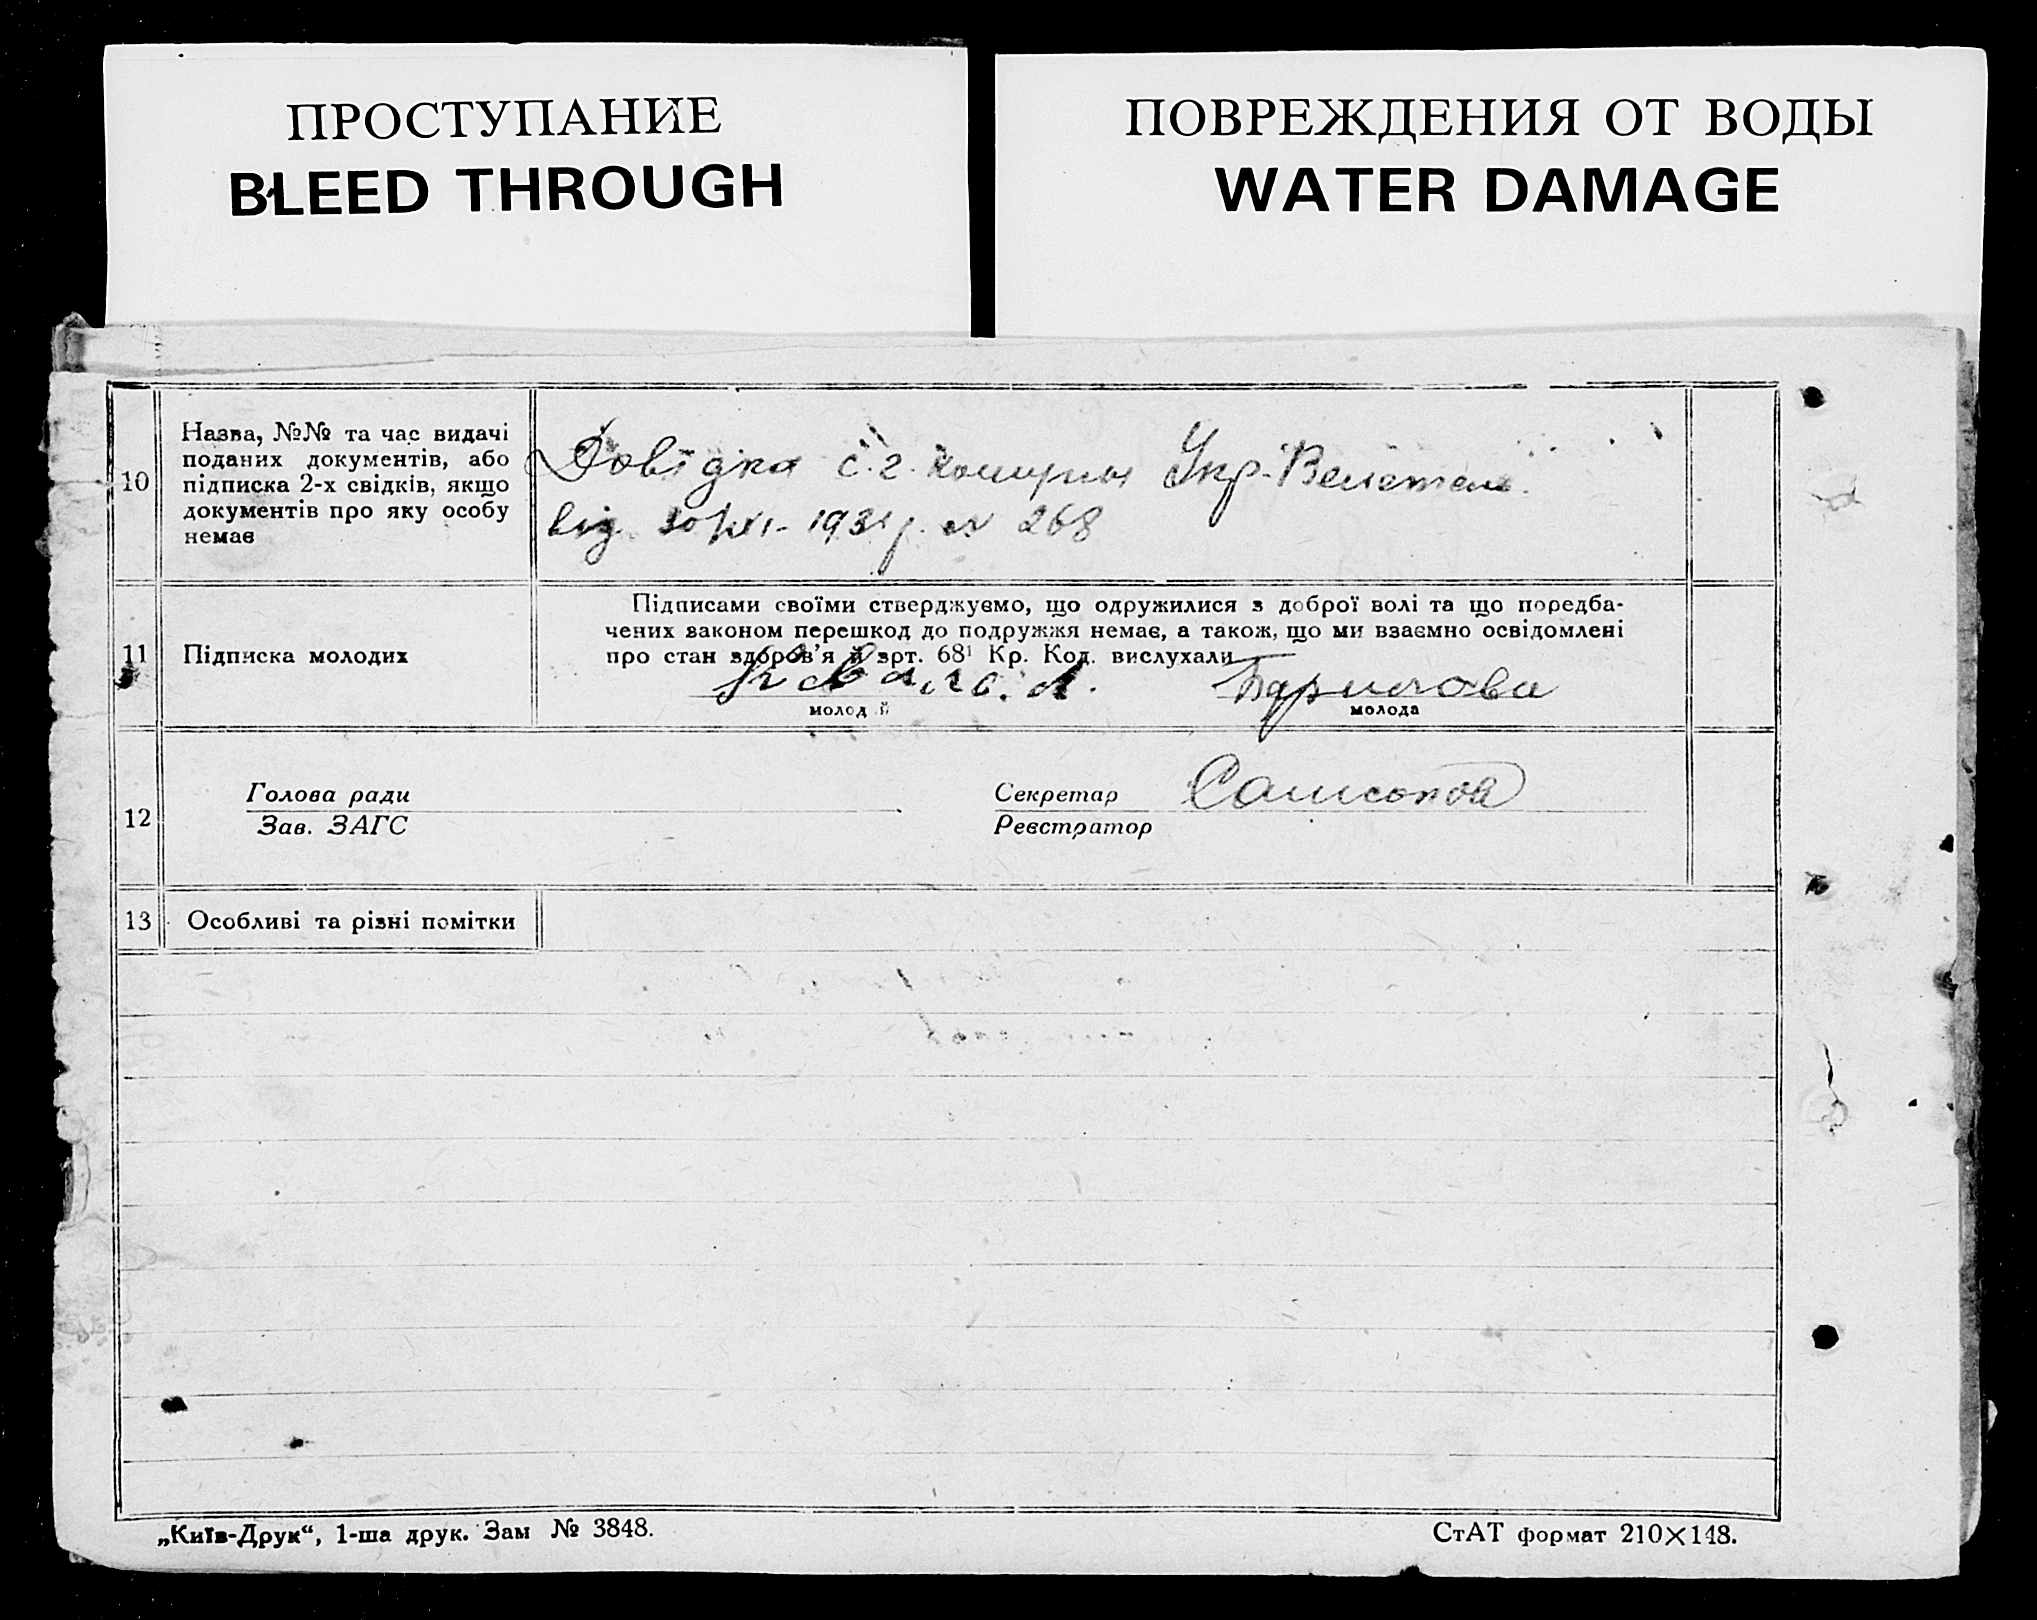 ПРОСТУПАНИЕ
BLEED THROUGH
ПОВРЕЖДЕНИЯ ОТ ВОДЫ
WATER DAMAGE
10
Назва, №№ та час видачі
поданих документів, або
підписка 2-х свідків, якщо
документів про яку особу
немає
Довідка с.г. комуни Укр.
від 30/XI- 1931 р. № 268
11
Підписка молодих
Підписами своїми стверджуємо, що одружилися з доброї волі та що поредба-
чених законом перешкод до подружжя немає, а також, що ми взаємно освідомлені
про стан здоров'я й арт. 68¹ Кр. Код. вислухали
молодий
молода
12
Голова ради
Зав. ЗАГС
Секретар
Реєстратор
13
Особливі та різні помітки
„Київ-Друк“, 1-ша друк. Зам № 3848.
СтАТ формат 210×148.